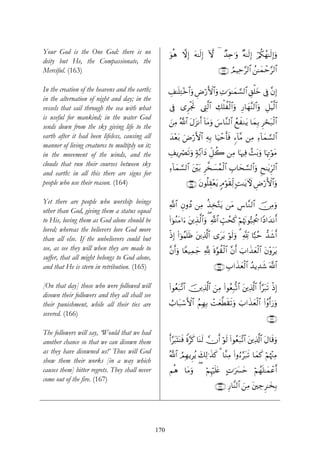 Your God is the One God: there is no
deity but He, the Compassionate, the
Merciful. (163)
وَإِلَٰهُكُمْ إِلَٰهٌ وَاحِدٌ ۖ لَّا إِلَٰهَ إِلَّا هُوَ
الرَّحْمَٰنُ الرَّحِيمُ ﴿١٦٣﴾
In the creation of the heavens and the earth;
in the alternation of night and day; in the
vessels that sail through the sea with what
is useful for mankind; in the water God
sends down from the sky giving life to the
earth after it had been lifeless, causing all
manner of living creatures to multiply on it;
in the movement of the winds, and the
clouds that run their courses between sky
and earth: in all this there are signs for
people who use their reason. (164)
إِنَّ فِي خَلْقِ السَّمَاوَاتِ وَالْأَرْضِ وَاخْتِلَافِ
اللَّيْلِ وَالنَّهَارِ وَالْفُلْكِ الَّتِي تَجْرِي فِي
الْبَحْرِ بِمَا يَنفَعُ النَّاسَ وَمَا أَنزَلَ اللَّهُ مِنَ
السَّمَاءِ مِن مَّاءٍ فَأَحْيَا بِهِ الْأَرْضَ بَعْدَ
مَوْتِهَا وَبَثَّ فِيهَا مِن كُلِّ دَابَّةٍ وَتَصْرِيفِ
الرِّيَاحِ وَالسَّحَابِ الْمُسَخَّرِ بَيْنَ السَّمَاءِ
وَالْأَرْضِ لَآيَاتٍ لِّقَوْمٍ يَعْقِلُونَ ﴿١٦٤﴾
Yet there are people who worship beings
other than God, giving them a status equal
to His, loving them as God alone should be
loved; whereas the believers love God more
than all else. If the unbelievers could but
see, as see they will when they are made to
suffer, that all might belongs to God alone,
and that He is stern in retribution. (165)
وَمِنَ النَّاسِ مَن يَتَّخِذُ مِن دُونِ اللَّهِ
أَندَادًا يُحِبُّونَهُمْ كَحُبِّ اللَّهِ ۖ وَالَّذِينَ آمَنُوا
أَشَدُّ حُبًّا لِّلَّهِ ۗ وَلَوْ يَرَى الَّذِينَ ظَلَمُوا إِذْ
يَرَوْنَ الْعَذَابَ أَنَّ الْقُوَّةَ لِلَّهِ جَمِيعًا وَأَنَّ
اللَّهَ شَدِيدُ الْعَذَابِ ﴿١٦٥﴾
[On that day] those who were followed will
disown their followers and they all shall see
their punishment, while all their ties are
severed. (166)
إِذْ تَبَرَّأَ الَّذِينَ اتُّبِعُوا مِنَ الَّذِينَ اتَّبَعُوا
وَرَأَوُا الْعَذَابَ وَتَقَطَّعَتْ بِهِمُ الْأَسْبَابُ
﴿١٦٦﴾
The followers will say, ‘Would that we had
another chance so that we can disown them
as they have disowned us!’ Thus will God
show them their works [in a way which
causes them] bitter regrets. They shall never
come out of the fire. (167)
وَقَالَ الَّذِينَ اتَّبَعُوا لَوْ أَنَّ لَنَا كَرَّةً فَنَتَبَرَّأَ
مِنْهُمْ كَمَا تَبَرَّءُوا مِنَّا ۗ كَذَٰلِكَ يُرِيهِمُ اللَّهُ
أَعْمَالَهُمْ حَسَرَاتٍ عَلَيْهِمْ ۖ وَمَا هُم
بِخَارِجِينَ مِنَ النَّارِ ﴿١٦٧﴾
170